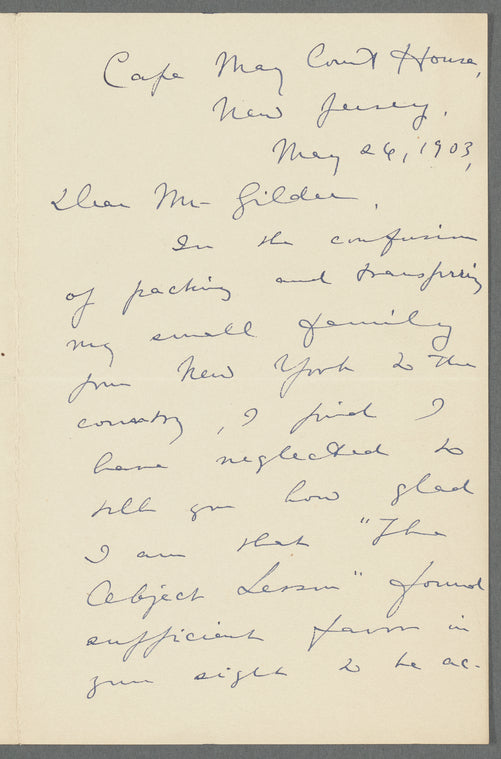 Cape May Court House,
New Jersey.
May 26, 1903,
Dear Mr Gilder,
In the confusion
of packing and transferring
my small family
from New York to the
country, I find I
have neglected to
tell you how glad
I am that "The
Object Lesson" found
sufficient favor in
your sight to be ac-